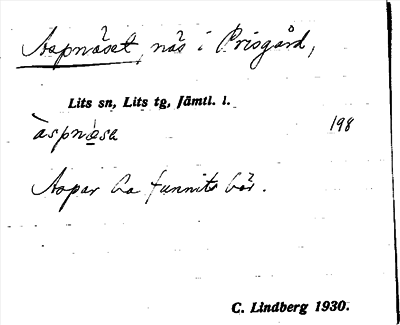 Aspnäset, näs i Prisgård,
Lits sn, Lits tg, Jämtl. l.
àspnèsa 198
Aspar ha funnits här.
C. Lindberg 1930.